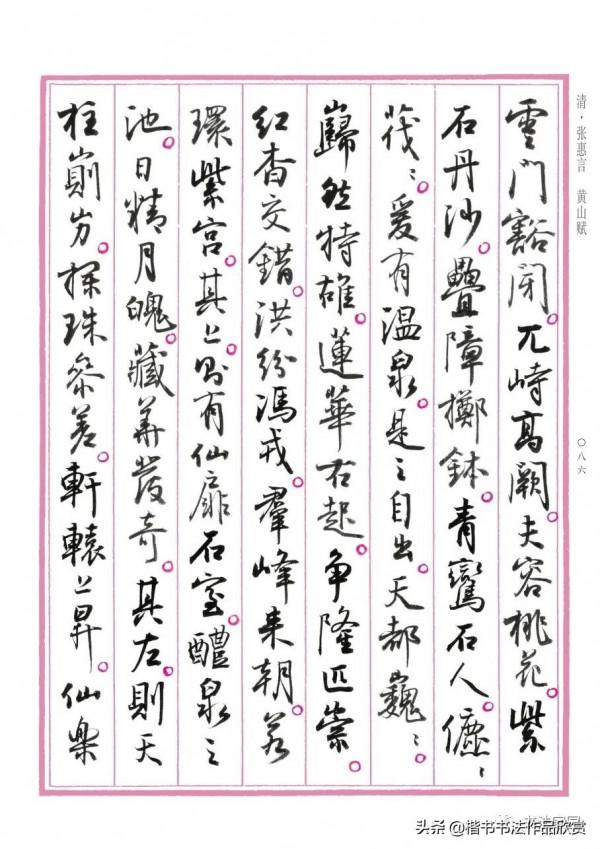 清·张惠言 黄山赋
〇八六
雲門豁閉。兀峙高闕。夫容桃花。紫
石丹沙。疊障擲鉢。青鸞石人。儦〻
筏〻。爰有溫泉。是之自出。天都巍〻。
巋然特雄。蓮華右起。爭隆匹崇。
紅杳交錯。洪紛馮戎。羣峰来朝。若
環紫宫。其上則有仙扉石室。醴泉之
池。日精月魄。藏華發奇。其左則天
柱崱屴。探珠参差。軒轅上昇。仙樂
头条 @楷书书法作品欣赏